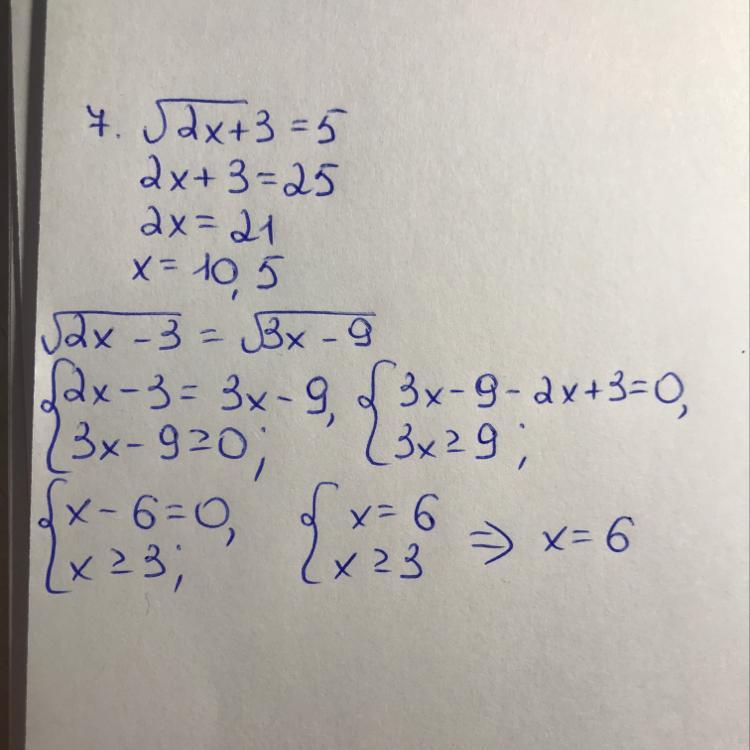 7. √2x+3 = 5
2x+3=25
2x = 21
x = 10,5
√2x - 3 = √3x - 9
{2x - 3 = 3x - 9, {3x - 9 - 2x + 3 = 0,
3x - 9 ≥ 0; 3x ≥ 9;
{x - 6 = 0, {x = 6 ⇒ x = 6
x ≥ 3; x ≥ 3